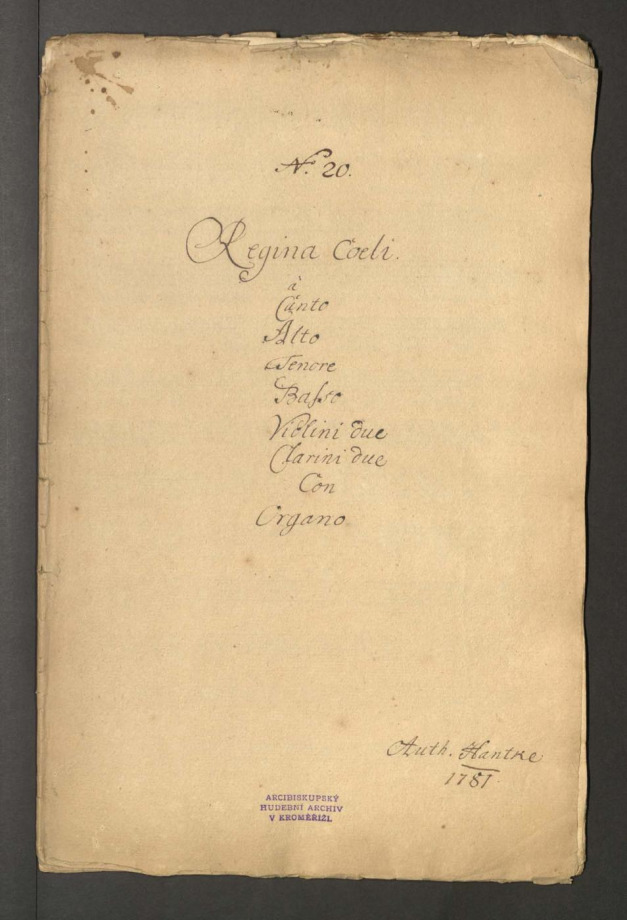 N.º 20.
Regina Coeli.
à
Canto
Alto
Tenore
Basso
Violini due
Clarini due
Con
Organo
Auth. Hantke
1781
ARCIBISKUPSKÝ
HUDEBNÍ ARCHIV
V KROMĚŘÍŽI.